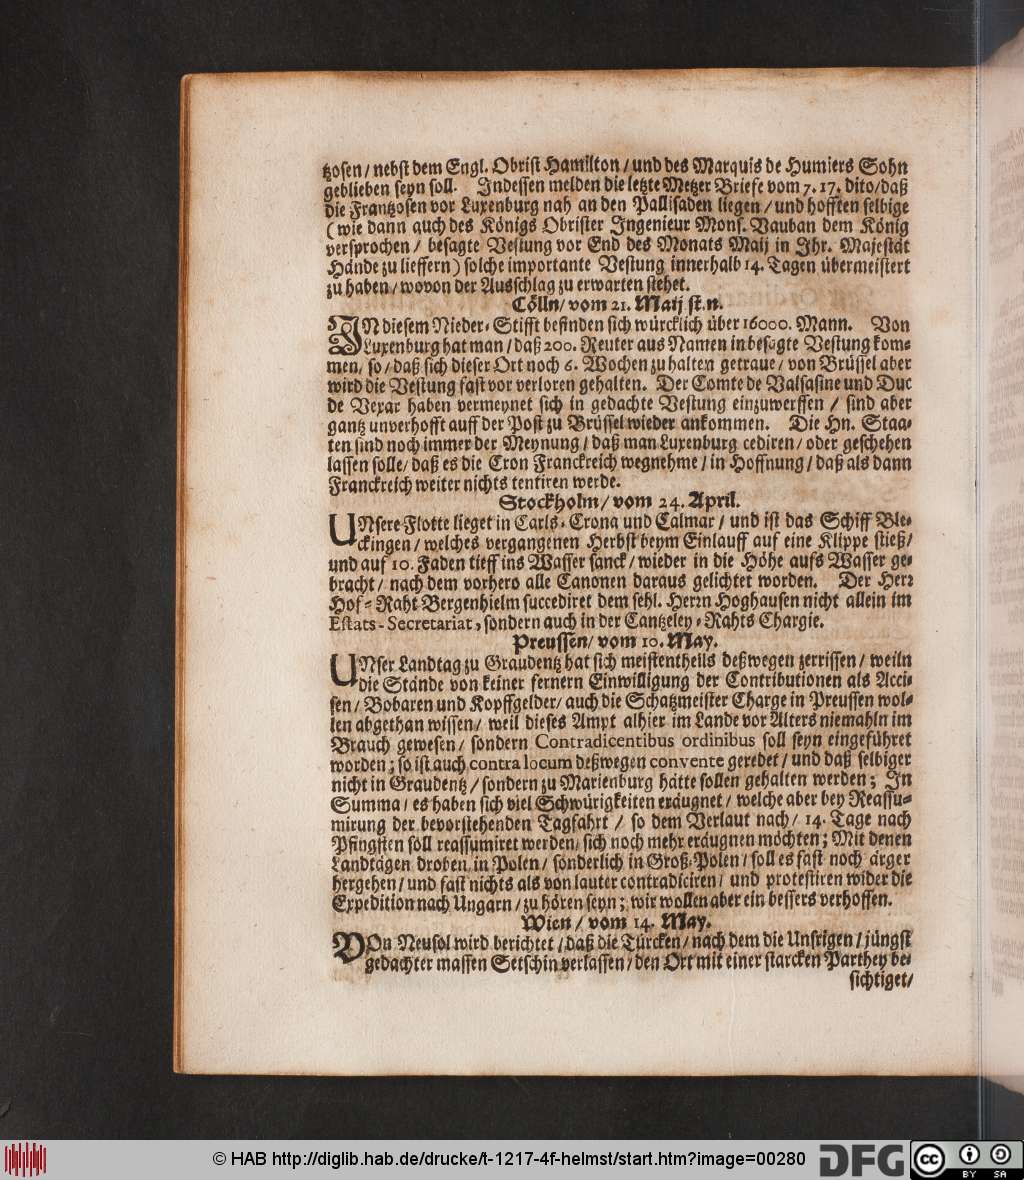 tzosen / nebst dem Engl. Obrist Hamilton / und des Marquis de Humiers Sohn
geblieben seyn soll. Indessen melden die letzte Metzer Briefe vom 7. 17. dito / daß
die Frantzosen vor Luxenburg nah an den Pallisaden liegen / und hofften selbige
( wie dann auch des Königs Obrister Ingenieur Mons. Vauban dem König
versprochen / besagte Vestung vor End des Monats Maij in Ihr. Majestät
Hände zu lieffern ) solche importante Vestung innerhalb 14. Tagen übermeistert
zu haben / wovon der Ausschlag zu erwarten stehet.
Cölln / vom 21. Maij st. n.
IN diesem Nieder-Stifft befinden sich würcklich über 16000. Mann. Von
Luxenburg hat man / daß 200. Reuter aus Namen in besagte Vestung kom-
men / so / daß sich dieser Ort noch 6. Wochen zu halten getraue / von Brüssel aber
wird die Vestung fast vor verloren gehalten. Der Comte de Valsasine und Duc
de Vexar haben vermeynet sich in gedachte Vestung einzuwerffen / sind aber
gantz unverhofft auff der Post zu Brüssel wieder ankommen. Die Hn. Staa-
ten sind noch immer der Meynung / daß man Luxenburg cediren / oder geschehen
lassen solle / daß es die Cron Franckreich wegnehme / in Hoffnung / daß als dann
Franckreich weiter nichts tentiren werde.
Stockholm / vom 24. April.
UNsere Flotte lieget in Carls-Crona und Calmar / und ist das Schiff Ble-
ckingen / welches vergangenen Herbst beym Einlauff auf eine Klippe stieß /
und auf 10. Faden tieff ins Wasser sanck / wieder in die Höhe aufs Wasser ge-
bracht / nach dem vorhero alle Canonen daraus gelichtet worden. Der Herr
Hof-Raht Bergenhielm succediret dem sehl. Herrn Hoghausen nicht allein im
Estats-Secretariat, sondern auch in der Cantzeley-Rahts Chargie.
Preussen / vom 10. May.
UNser Landtag zu Graudentz hat sich meistentheils deßwegen zerrissen / weiln
die Stände von keiner fernern Einwilligung der Contributionen als Acci-
sen / Bobaren und Kopffgelder / auch die Schatzmeister Charge in Preussen wol-
len abgethan wissen / weil dieses Ampt alhier im Lande vor Alters niemahln im
Brauch gewesen / sondern Contradicentibus ordinibus soll seyn eingeführet
worden ; so ist auch contra locum deßwegen convente geredet / und daß selbiger
nicht in Graudentz / sondern zu Marienburg hätte sollen gehalten werden ; In
Summa / es haben sich viel Schwürigkeiten eräugnet / welche aber bey Reassu-
mirung der bevorstehenden Tagfahrt / so dem Verlaut nach / 14. Tage nach
Pfingsten soll reassumiret werden / sich noch mehr eräugnen möchten ; Mit denen
Landtägen droben in Polen / sonderlich in Groß-Polen / soll es fast noch ärger
hergehen / und fast nichts als von lauter contradiciren / und protestiren wider die
Expedition nach Ungarn / zu hören seyn ; wir wollen aber ein bessers verhoffen.
Wien / vom 14. May.
VOn Neusol wird berichtet / daß die Türcken / nach dem die Unsrigen / jüngst
gedachter massen Setschin verlassen / den Ort mit einer starcken Parthey be-
sichtiget /
© HAB http://diglib.hab.de/drucke/t-1217-4f-helmst/start.htm?image=00280
DFG
cc
BY SA